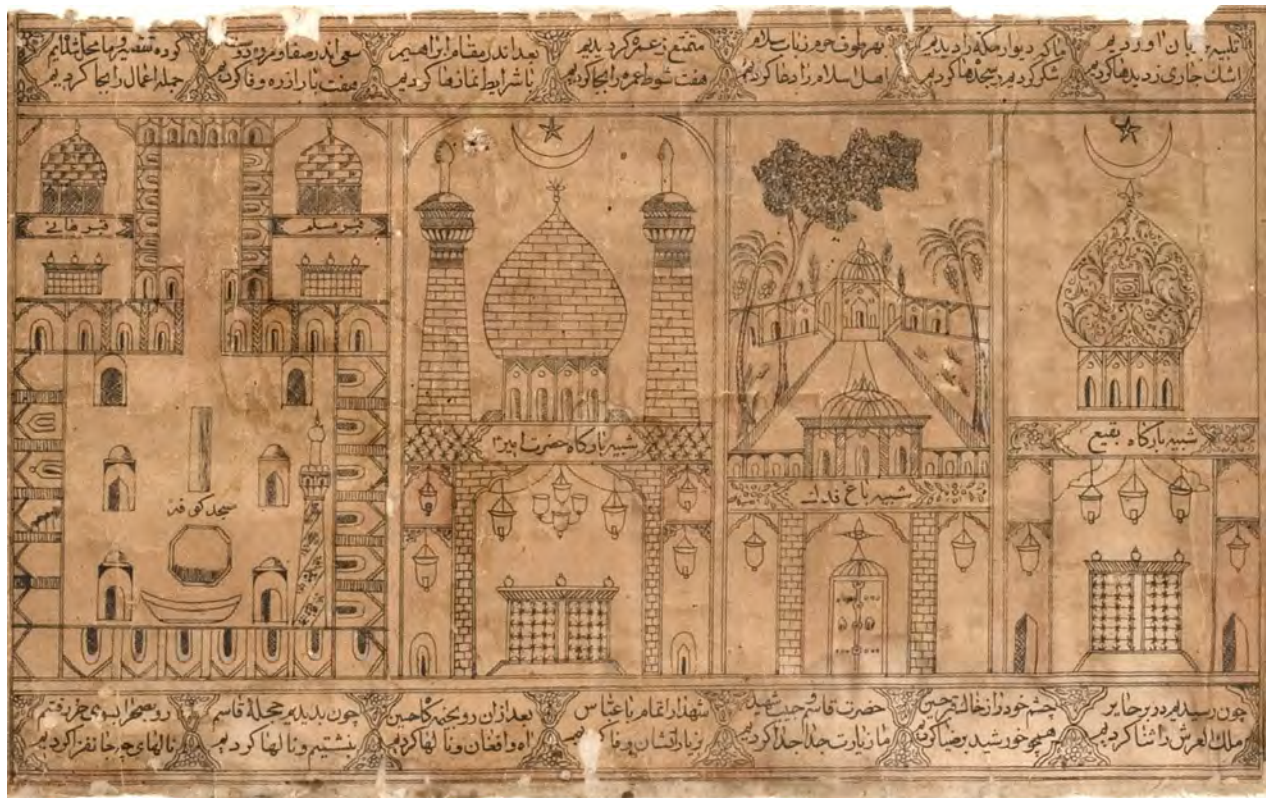 تلبیه بر زبان اوردیم
اشک جاری ز دیدها کردیم
ما که دیوار مکه را دیدیم
شکر کردیم سجدها کردیم
بهر طوف حرم ز باب سلام
اهل اسلام را دعا کردیم
متمتع ز عمره گردیدیم
هفت شوط عمره را بجا کردیم
بعد اندر مقام ابراهیم
با شرایط نمازها کردیم
سعی اندر صفا و مروه
هفت بار از ره وفا کردیم
کرده تقصیرها محل
جمله اعمال را بجا کردیم
شبیه بارگاه بقیع
شبیه باغ فدک
شبیه بارگاه حضرت امیر
قبر مسلم
قبر هانی
مسجد کوفه
چون رسیدیم در بر حایر
ملک العرش را ثنا کردیم
چشم خود را از خاک حسین
همچو خورشید پر ضیا کردیم
حضرت قاسم و حبیب شهید
ما زیارت جدا جدا کردیم
شهدا را تمام با عباس
کردیم
بعد ازان رو بخیمه گاه حسین
اه و افغان و نالها کردیم
چون بدیدیم حجله قاسم
بنشستیم و نالها کردیم
رو بصحرا بسوی حر رفتیم
نالهای چه جانفزا کردیم